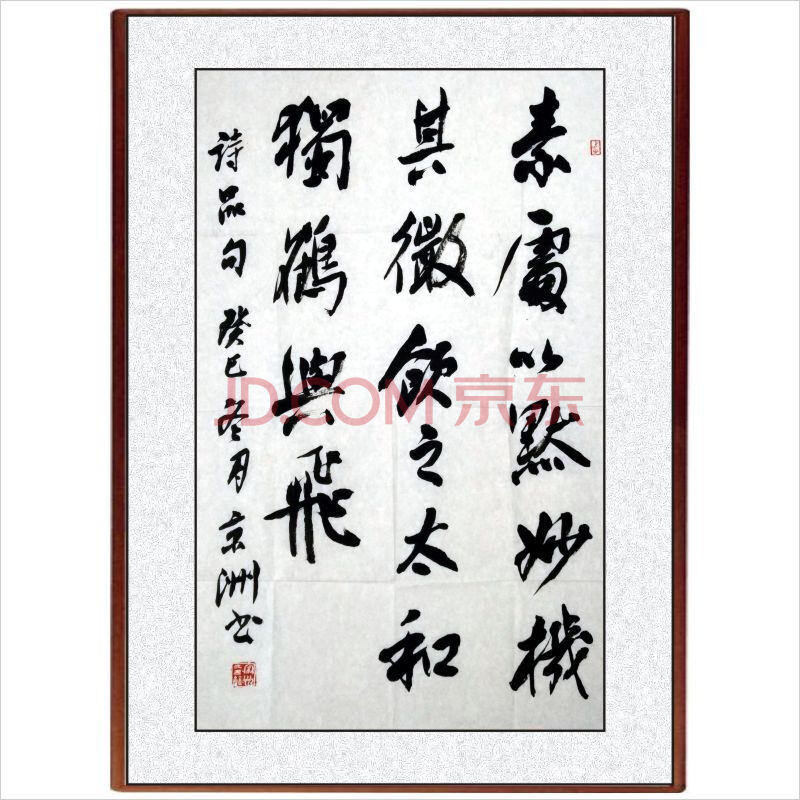 素處以默妙機
其微飲之太和
獨鶴與飛
詩品句 癸巳冬月 京洲书
JD.COM 京东